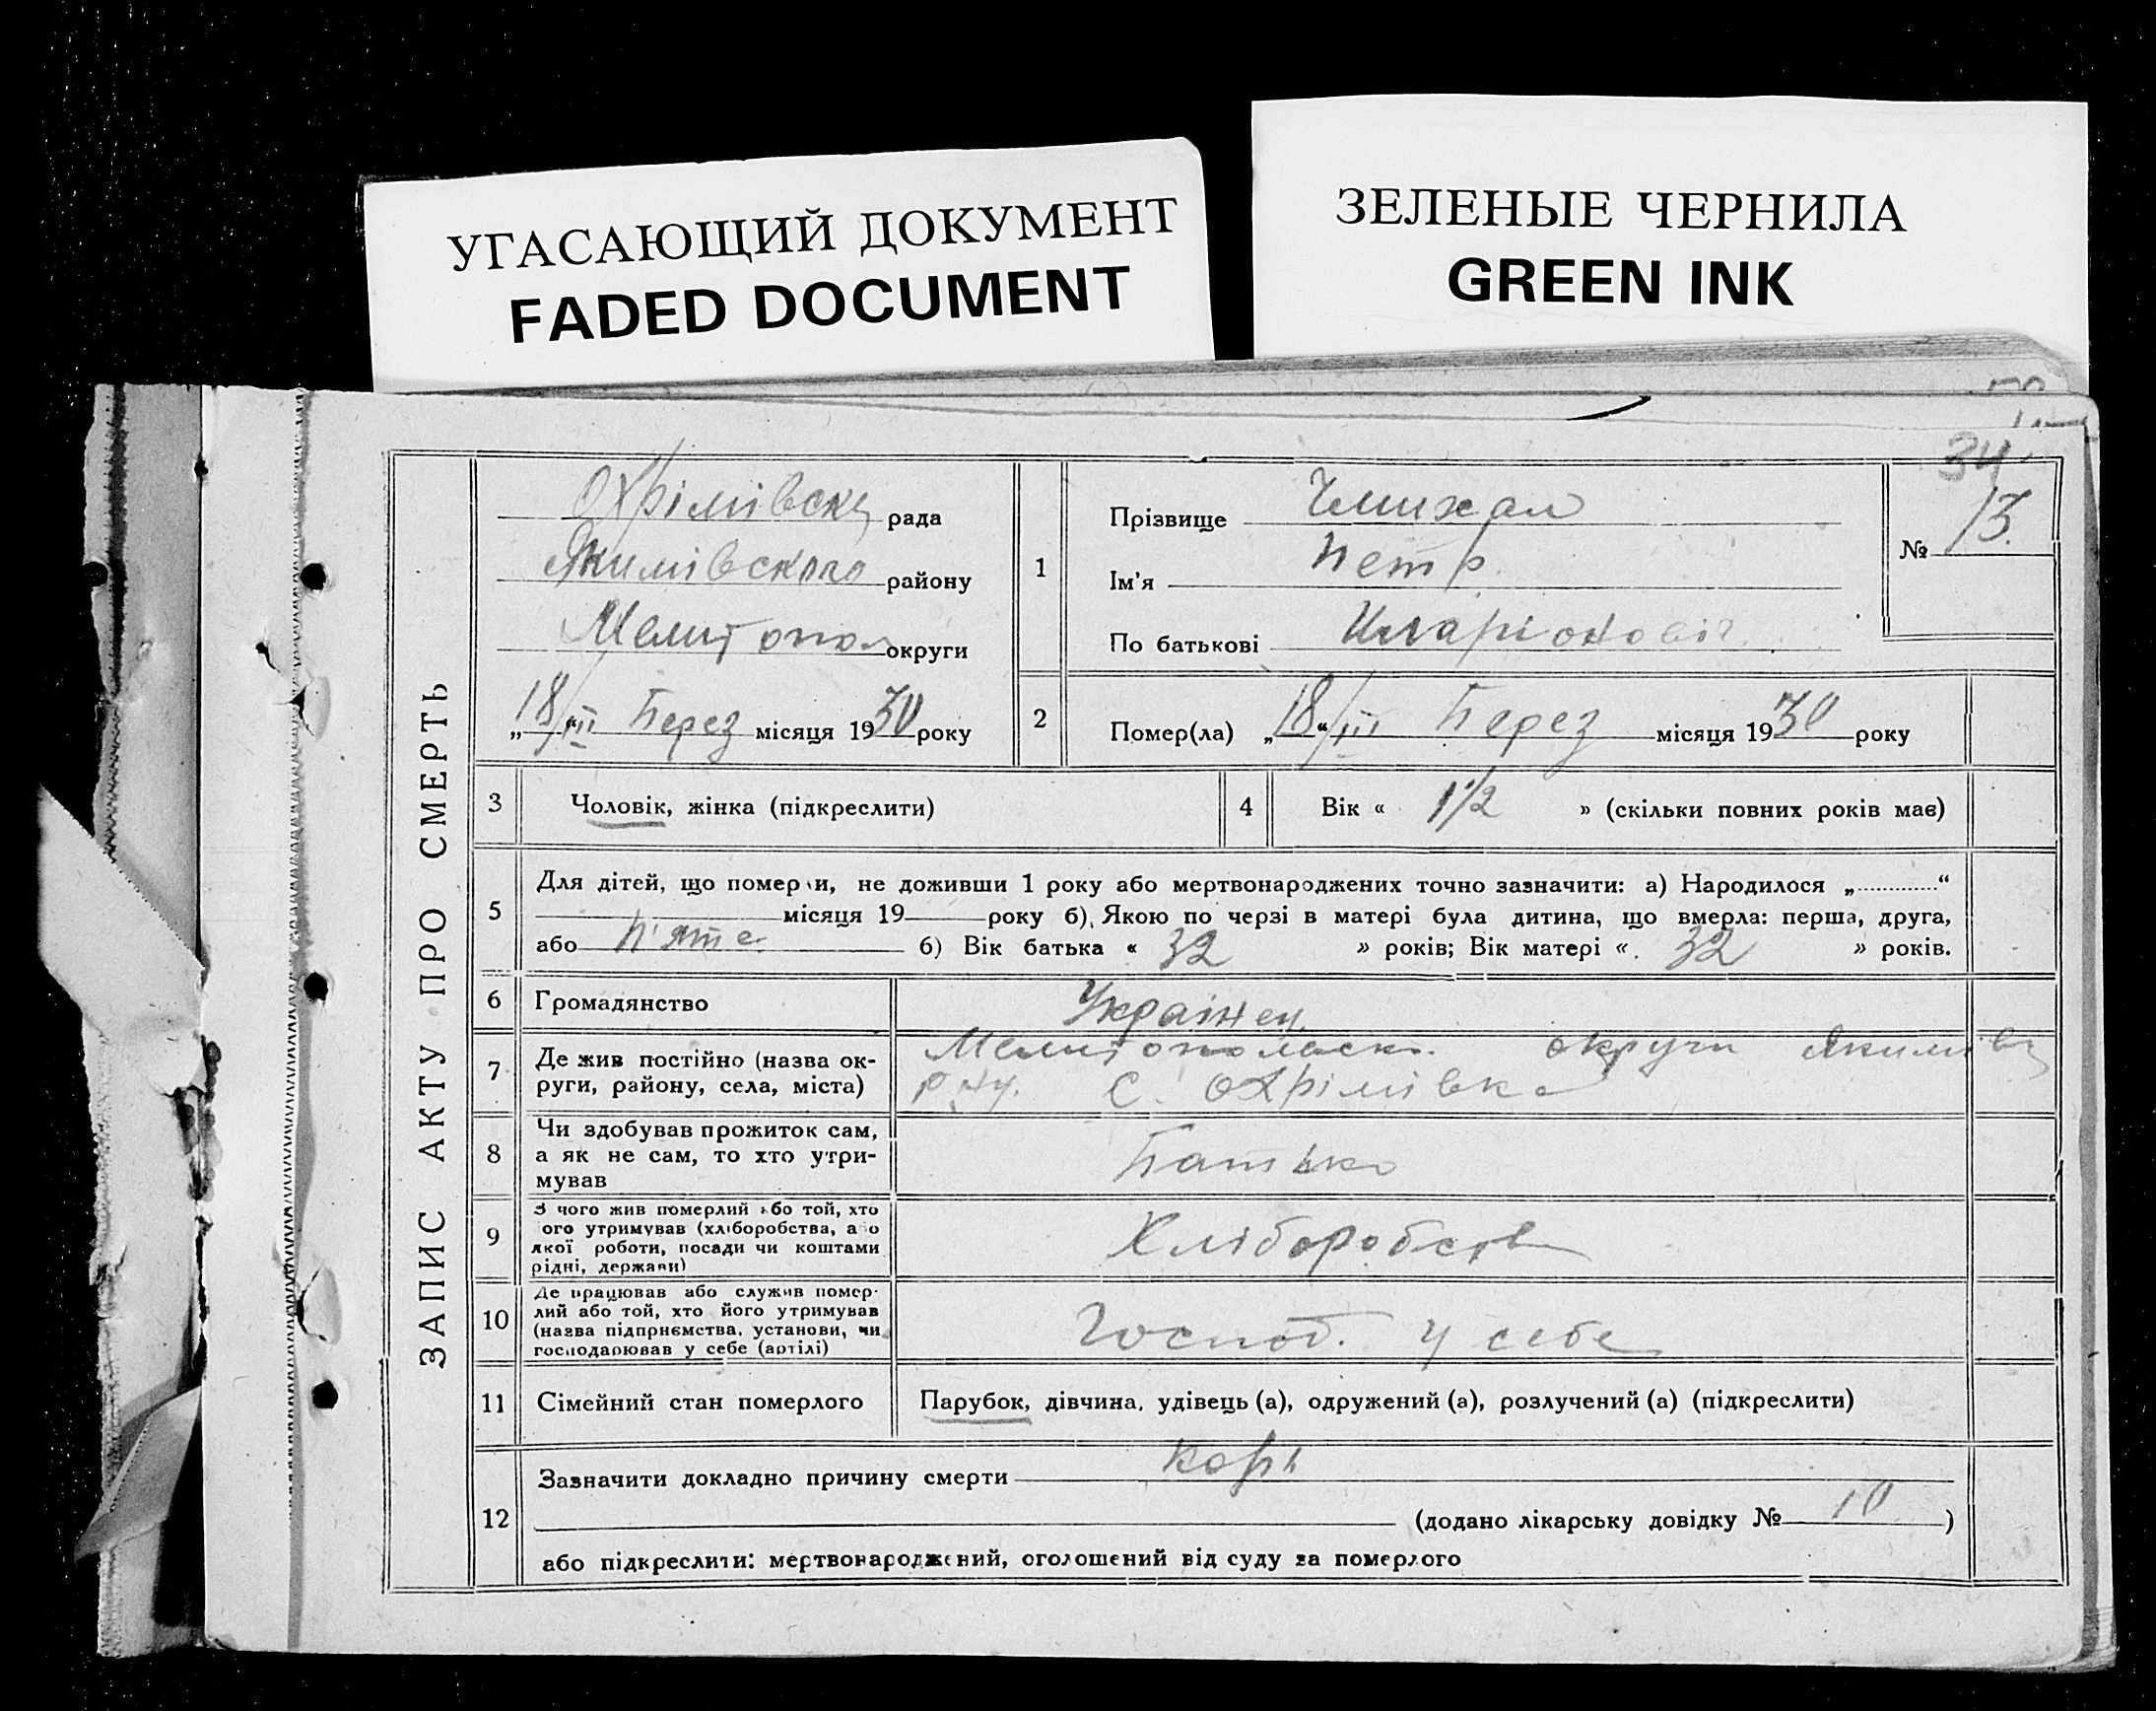 УГАСАЮЩИЙ ДОКУМЕНТ
FADED DOCUMENT
ЗЕЛЕНЫЕ ЧЕРНИЛА
GREEN INK
34
ЗАПИС АКТУ ПРО СМЕРТЬ
Охрімівска рада
Якимівского району
Мелітопол округи
„18/III“ Берез місяця 1930 року
1
Прізвище Чмихал
Ім'я Петр
По батькові Іларіоновіч
№ 13.
2
Помер(ла) „18“/III Берез місяця 1930 року
3 Чоловік, жінка (підкреслити)
4 Вік « 1 1/2 » (скільки повних років має)
5 Для дітей, що померли, не доживши 1 року або мертвонароджених точно зазначити: а) Народилося „ “
місяця 19 року б) Якою по черзі в матері була дитина, що вмерла: перша, друга,
або п'яте б) Вік батька « 32 » років; Вік матері « 32 » років.
6 Громадянство Українец
7 Де жив постійно (назва ок-
руги, району, села, міста)
Мелитопольск. округи Якимівс
р-ну. С. Охрімівка
8 Чи здобував прожиток сам,
а як не сам, то хто утри-
мував
Батько
9 З чого жив померлий або той, хто
ого утримував (хліборобства, або
якої роботи, посади чи коштами
рідні, держави)
Хліборобств
10 Де працював або служив помер-
лий або той, хто його утримував
(назва підприємства, установи, чи
господарював у себе (артілі)
Господ. у себе
11 Сімейний стан померлого Парубок, дівчина, удівець (а), одружений (а), розлучений (а) (підкреслити)
12 Зазначити докладно причину смерти Корь
(додано лікарську довідку № 10 )
або підкреслити: мертвонароджений, оголошений від суду за померлого